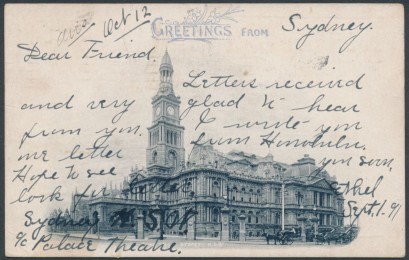 Ans. Oct 12
GREETINGS FROM
Sydney.
Dear Friend.
Letters received
and very glad to hear
from you. I wrote you
one letter from Honolulu.
Hope to see you soon,
look for letter
Ethel
Sydney
Sept. 1. 91
c/o Palace Theatre.